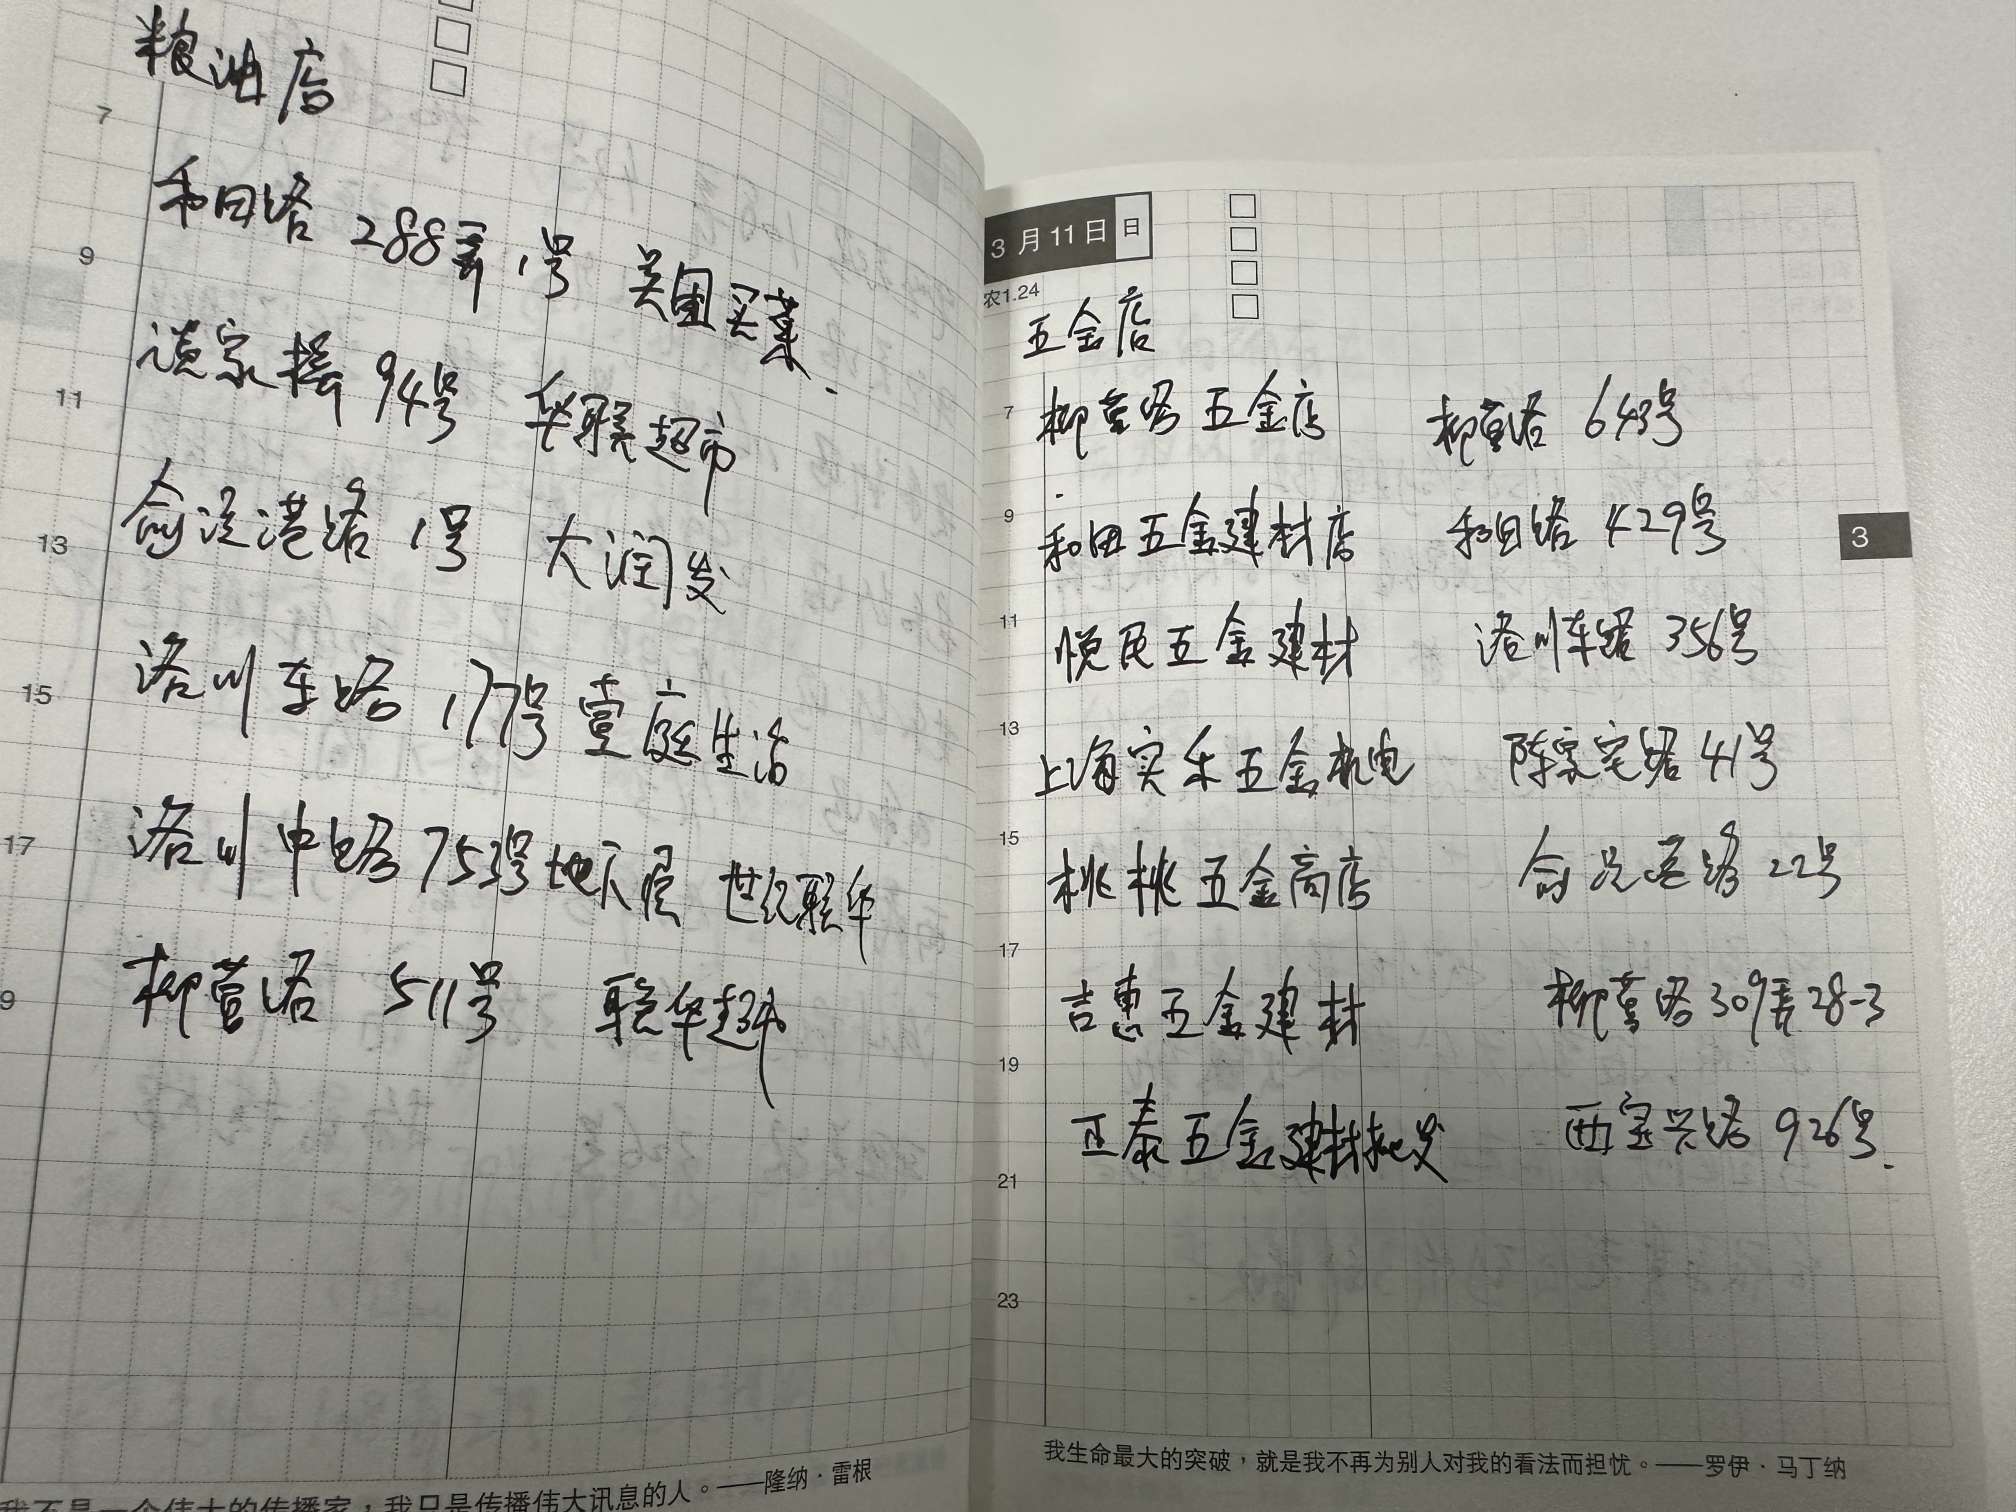 粮油店
7
和田路 288弄1号 美团买菜.
9
谈家桥 94号 华联超市
11
俞泾港路 1号 大润发
13
洛川东路 177号 壹庭生活
15
洛川中路 753号地下层 世纪联华
17
柳营路 511号 联华超市
9
我不是一个伟大的传播家，我只是传播伟大讯息的人。——隆纳·雷根
3月11日 日
农1.24
五金店
7
柳营路五金店 柳营路 643号
9
和田五金建材店 和田路 429号
3
11
悦民五金建材 洛川东路 356号
13
上海实乐五金机电 陈家宅路 41号
15
桃桃五金商店 俞泾港路 22号
17
吉惠五金建材 柳营路309弄28-3
19
正泰五金建材批发 西宝兴路 926号.
21
23
我生命最大的突破，就是我不再为别人对我的看法而担忧。——罗伊·马丁纳